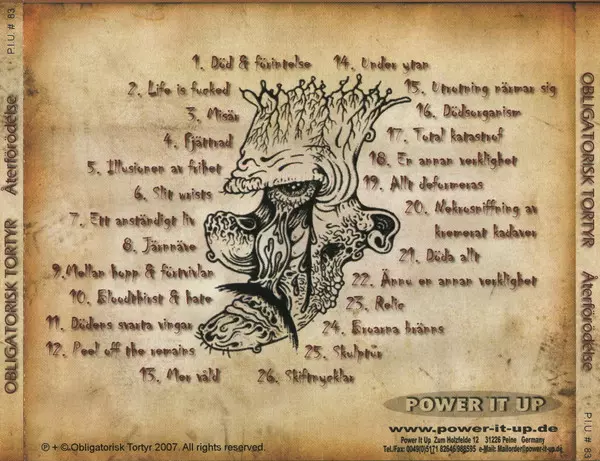 OBLIGATORISK TORTYR Återförödelse P.I.U. # 83
1. Död & förintelse
2. Life is fucked
3. Misär
4. Fjättrad
5. Illusionen av frihet
6. Slit wrists
7. Ett anständigt liv
8. Järnnäve
9. Mellan hopp & förtvivlan
10. Bloodthirst & hate
11. Dödens svarta vingar
12. Peel off the remains
13. Mer våld
14. Under ytan
15. Utrotning närmar sig
16. Dödsorganism
17. Total katastrof
18. En annan verklighet
19. Allt deformeras
20. Nekrosniffning av
kremerat kadaver
21. Döda allt
22. Ännu en annan verklighet
23. Relic
24. Broarna bränns
25. Skulptör
26. Skiftnycklar
POWER IT UP
www.power-it-up.de
Power It Up Zum Holzfelde 12 31226 Peine Germany
Tel./Fax: 0049(0)5171 82646/988595 e-Mail: Mailorder@power-it-up.de
℗ + © Obligatorisk Tortyr 2007. All rights reserved.
OBLIGATORISK TORTYR Återförödelse P.I.U # 83